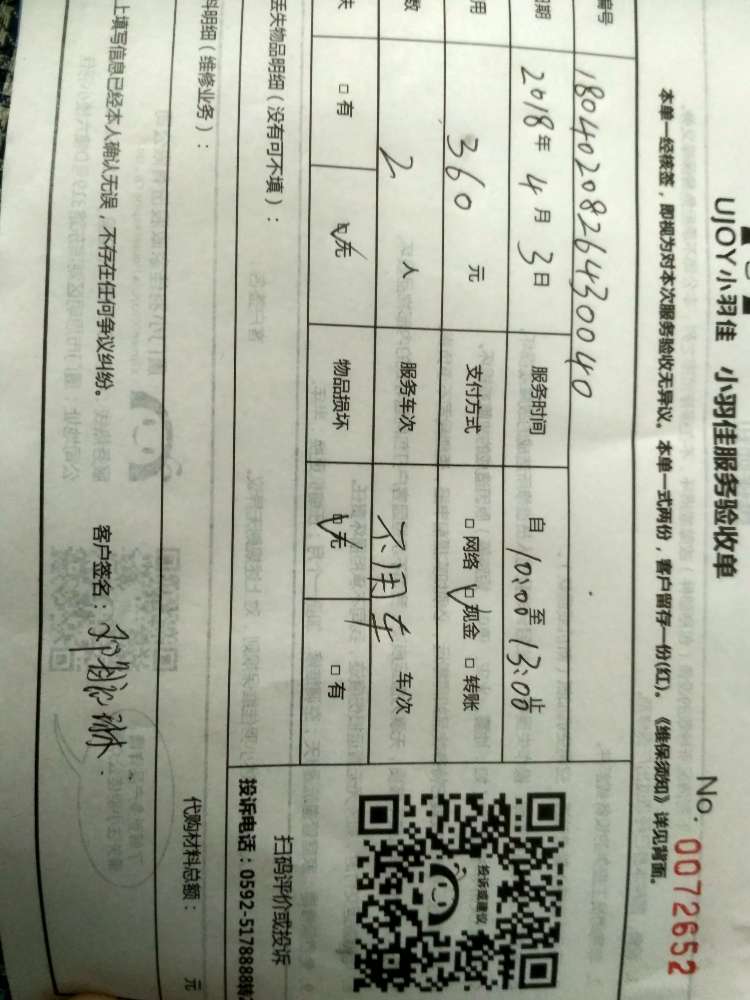 UJOY小羽佳 小羽佳服务验收单
No. 0072652
本单一经核签，即视为对本次服务验收无异议。本单一式两份，客户留存一份(红)。《维保须知》详见背面。
编号 18040208264430040
期 2018年4月3日 服务时间 自10:00至13:00止
用 360 元 支付方式 □网络 ☑现金 □转账
数 2 人 服务车次 不用车 车/次
失 □有 ☑无 物品损坏 ☑无 □有
丢失物品明细（没有可不填）：
投诉或建议
扫码评价或投诉
投诉电话：0592-5178888转
料明细（维修业务）：
代购材料总额： 元
上填写信息已经本人确认无误，不存在任何争议纠纷。 客户签名：